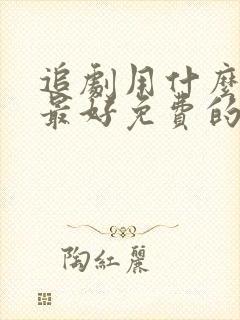 追劇用什麼
最好免費的
陶紅麗